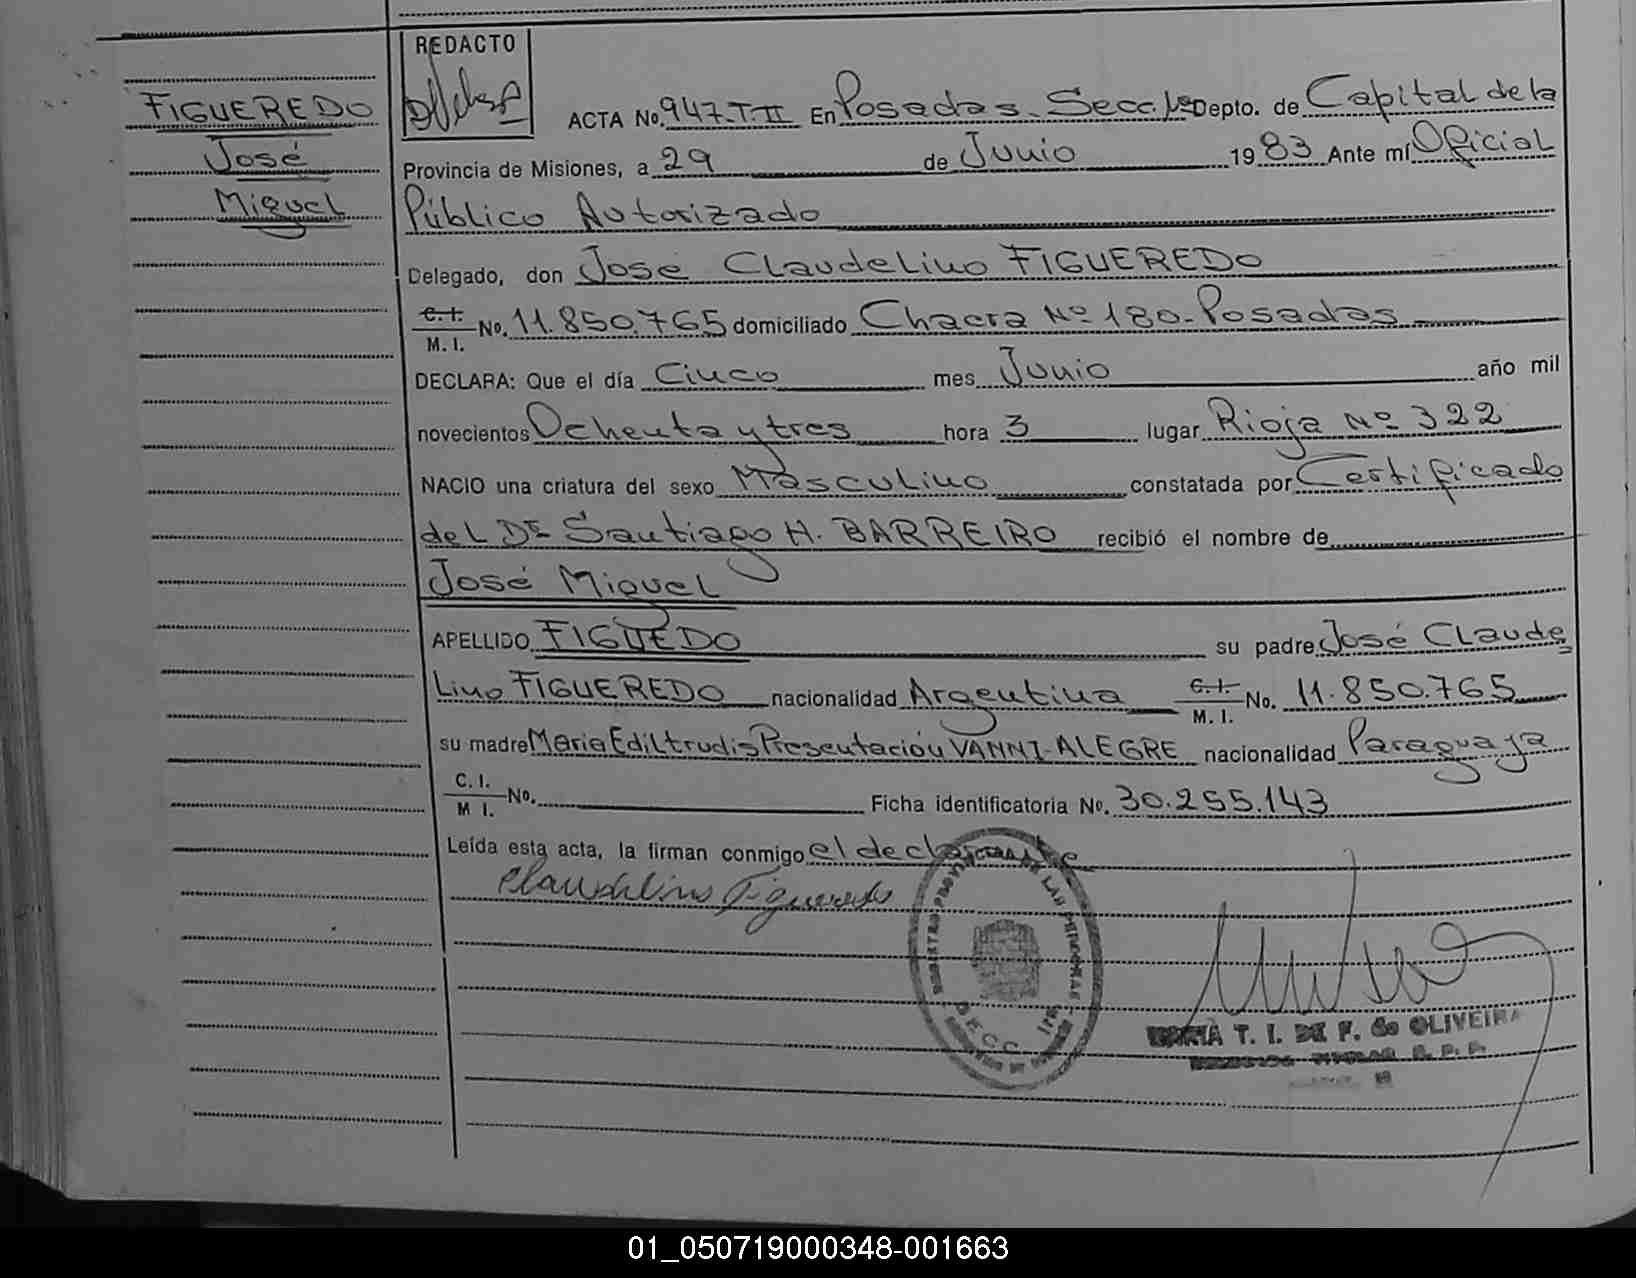 REDACTO
FIGUEREDO
José
Miguel
ACTA No. 947.T.II En Posadas. Secc. 1ª Depto. de Capital de la
Provincia de Misiones, a 29 de Junio 1983 Ante mí Oficial
Público Autorizado
Delegado, don José Claudelino FIGUEREDO
C. I.
M. I. No. 11.850.765 domiciliado Chacra Nº 180-Posadas
DECLARA: Que el día Cinco mes Junio año mil
novecientos Ochenta y tres hora 3 lugar Rioja Nº 322
NACIO una criatura del sexo Masculino constatada por Certificado
del Dr Santiago H. BARREIRO recibió el nombre de
José Miguel
APELLIDO FIGUEDO su padre José Claude
Lino FIGUEREDO nacionalidad Argentina C. I. M. I. No. 11.850.765
su madre Maria Ediltrudis Presentación VANNI-ALEGRE nacionalidad Paraguaya
C. I.
M I. No. Ficha identificatoria No. 30.255.143
Leída esta acta, la firman conmigo el declarante
Claudelino Figueredo
T. I. DE F. de OLIVEIRA
01_050719000348-001663